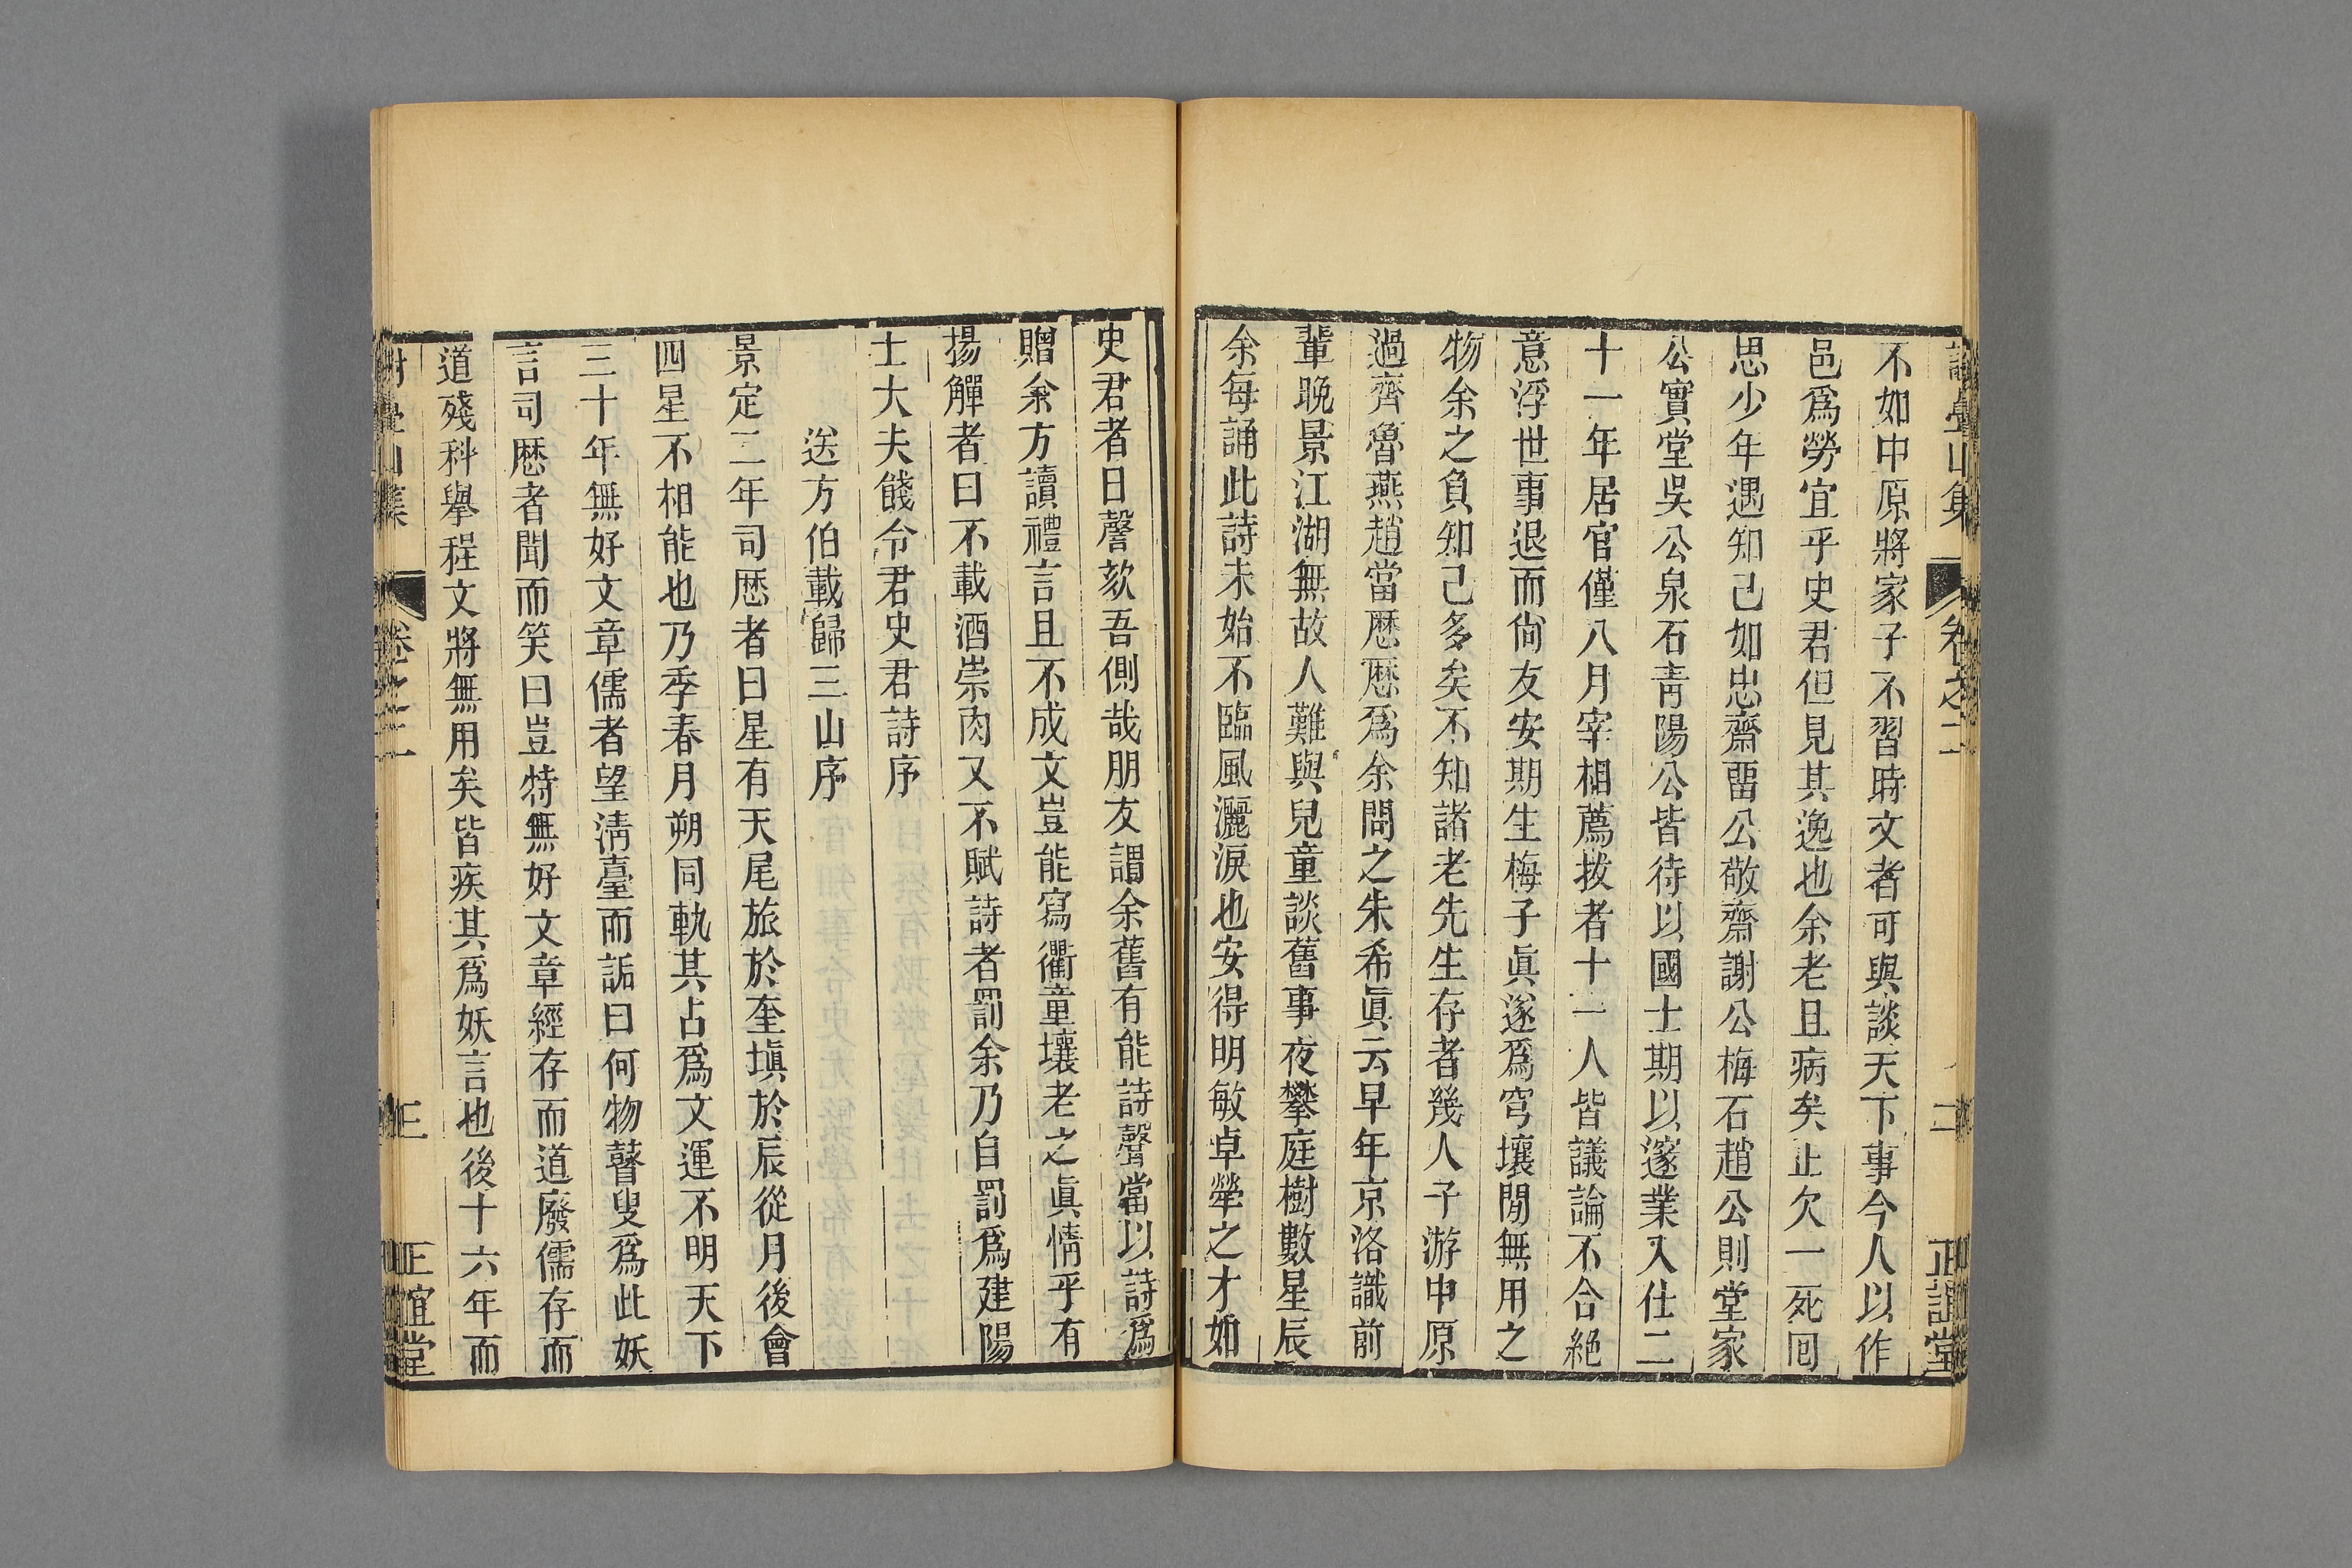 謝疊山集 卷之二 二 正誼堂
不如中原將家子不習時文者可與談天下事今人以作
邑爲勞宜乎史君但見其逸也余老且病矣止欠一死囘
思少年遇知己如忠齋畱公敬齋謝公梅石趙公則堂家
公實堂吳公泉石靑陽公皆待以國士期以邃業入仕二
十一年居官僅八月宰相薦拔者十一人皆議論不合絕
意浮世事退而尙友安期生梅子眞遂爲穹壤閒無用之
物余之負知己多矣不知諸老先生存者幾人子游中原
過齊魯燕趙當歷歷爲余問之朱希眞云早年京洛識前
輩晚景江湖無故人難與兒童談舊事夜攀庭樹數星辰
余每誦此詩未始不臨風灑淚也安得明敏卓犖之才如
史君者日謦欬吾側哉朋友謂余舊有能詩聲當以詩爲
贈余方讀禮言且不成文豈能寫衢童壤老之眞情乎有
揚觶者曰不載酒崇肉又不賦詩者罰余乃自罰爲建陽
士大夫餞令君史君詩序
送方伯載歸三山序
景定二年司歷者曰星有天尾旅於奎塡於辰從月後會
四星不相能也乃季春月朔同軌其占爲文運不明天下
三十年無好文章儒者望淸臺而詬曰何物瞽叟爲此妖
言司歷者聞而笑曰豈特無好文章經存而道廢儒存而
道殘科舉程文將無用矣皆疾其爲妖言也後十六年而
謝疊山集 卷之二 三 正誼堂